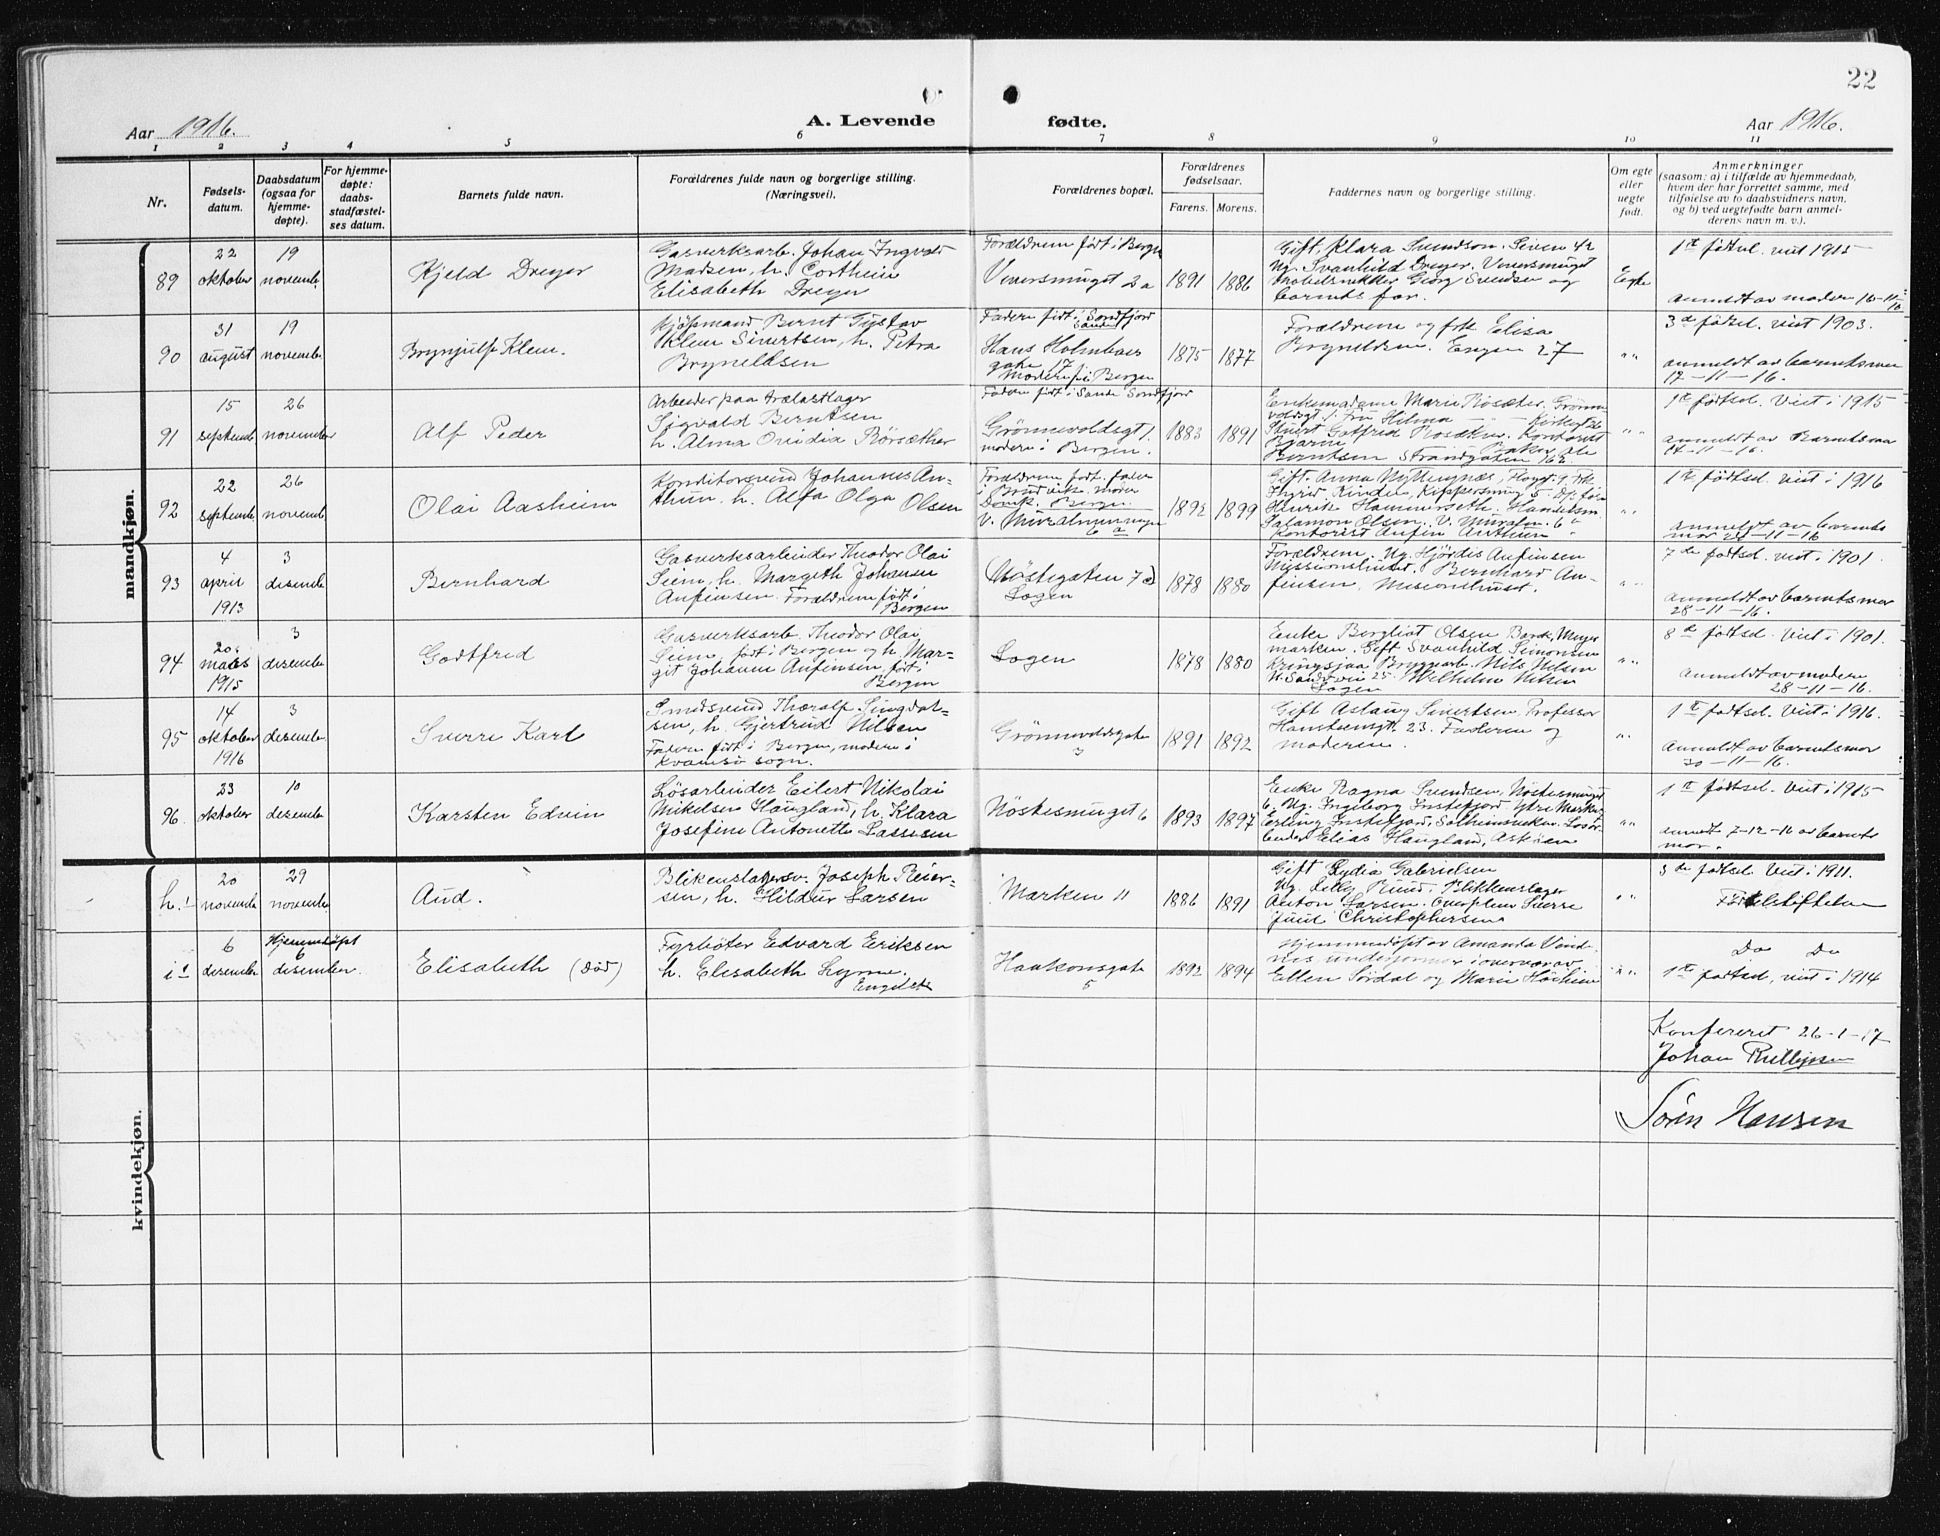 22
Aar 1916.
A. Levende fødte.
Aar 1916.
1 2 3 4 5 6 7 8 9 10 11
Nr.
Fødsels-
datum.
Daabsdatum
(ogsaa for
hjemme-
døpte).
For hjemme-
døpte:
daabs-
stadfæstel-
ses datum.
Barnets fulde navn.
Forældrenes fulde navn og borgerlige stilling.
(Næringsvei).
Forældrenes bopæl.
Forældrenes
fødselsaar.
Farens. Morens.
Faddernes navn og borgerlige stilling.
Om egte
eller
uegte
født.
Anmerkninger
(saasom: a) i tilfælde av hjemmedaab,
hvem der har forrettet samme, med
tilføielse av to daabsvidners navn,
og b) ved uegtefødte barn anmel-
derens navn m. v.).
mandkjøn.
89
22
oktober
19
novembe.
Kjeld Dreyer
Gasverksarb. Johan Ingvald
Madsen, h. Corthein
Elisabeth Dreyer
Forældrene født i Bergen
Veversmuget 2a
1891 1886
Gift Klara Svendson. Steven 42
Ug. Svanhild Dreyer. Veversmuget
Møbelsnekker Georg Svendsen og
barnets far.
Egte
1st fødsel. viet 1915
anmeldt av moder 16-11-16
90
31
august
19
novembe
Brynjulf Klem.
Kjøpmand Bernt Gustav
Klem Sivertsen, h. Petra
Bryneldsen
Fader født i Sande Sondfjord
Hans Holmboes
gate 17
Moder f. i Bergen
1875 1877
Forældrene og frk Elisa
Bryneldsen. Engen 27
" "
3de fødsel. viet 1903.
anmeldt av barnetsmor
17-11-16.
91
15
septemb
26
november
Alf Peder
Arbeider paa trælastlager
Sigvald Berntsen
h. Alma Ovidia Rørsæther
Fader født i Sande Sondfjord
Grönnevoldsgt 1.
moder i Bergen.
1883 1891
Enkemadame Marie Rosæter, Grönne
voldsgt 1. Fru Hilma
Stuert Gotfred Rosæter. Kontorist
Bjarne
Berntsen Strandgaten 162
" "
1te fødsel. Viet i 1915
anmeldt av Barnetsmor
17-11-16.
92
22
septembe
26
novemb
Olai Aasheim
Konditorsvend Johannes An-
thun. h. Alfa Olga Olsen
Forældrene født. fader
i Bruvik. moder
Domk. Bergen.
V. Muralmenningen
6 a
1892 1899
Henrik Hammerseth. Handelsm.
Salamon Olsen. V. Muralm. 6
Kontorist Anfin Anthun
"
1te fødsel. viet i 1916
anmeldt av barnets
mor 24-11-16
93
4
april
1913
3
desembe
Bernhard
Gasverksarbeider Theodor Olai
Seim, h. Margith Johanne
Anfinsen. Forældrene født i
Bergen
Nöstegaten 7d
Sogen
1878 1880
Forældrene. Ug. Hjördis Anfinsen
Missionshuset. Bernhard An-
finsen. Missionshuset.
" "
7de fødsel. viet i 1901.
anmeldt av barnets mor
28-11-16.
94
20.
marts
1915
3
desembe
Godtfred
Gasverksarb. Theodor Olai
Seim, født i Bergen og h. Mar-
git Johanne Anfinsen, født i
Bergen
Sogen
1878 1880
Enke Bergliot Olsen
marken. Gift Svanhild Simonsen
Kringsjaa, Bryggearb. Nils Nilsen
N. Sandvien 25 Wilhelm Nilsen
Sogen
" "
8de fødsel. viet i 1901.
Anmeldt av moderen
28-11-16.
95
14
oktober
1916
3
desembe
Sverre Karl
Smedsvend Thoralf Singdal-
sen, h. Gjertrud Nilsen
Fader født i Bergen, moder i
Kvamsö sogn.
Grönnevoldsgate
3
1891 1892
Gift Aslaug Sivertsen, Professor
Hansteensgt. 23. Faderen og
moderen.
" "
1te fødsel. Viet i 1916.
Anmeldt av barnetsmor
30-11-16.
96
23
oktober
10
desembe
Karsten Edvin
Løsarbeider Eilert Nikolai
Mikelsen Haugland, h. Klara
Josefine Antonette Lassesen
Nöstesmuget 6
1893 1897
Enke Ragna Svendsen, Nöstesmuget
6. Ug. Ingeborg Instefjord, Ytre Marker
Erling Instefjord, Solheimsviken. Losar-
beider Elias Haugland, Asköen
" "
1te fødsel. Viet i 1915
anmeldt 7-12-16 av barnets
mor.
kvindekjøn.
h.1
20
novembe
29
november
Aud.
Blikenslagersv. Joseph Reier-
sen, h. Hildur Larsen
Marken 11
1886 1891
Gift Lydia Gabrielsen
Ug. Lilly Rund. Blikkenslager
Anton Larsen. Sverre
Juul Christophersen
" "
3de fødsel. Viet i 1911.
Fødselstiftelsen
i1
6
desember
Hjemmedöpt
6
desember.
Elisabeth (død)
Fyrböter Edvard Eriksen
h. Elisabeth Lynne.
Haakonsgate
5
1892 1894
Hjemmedöpt av Amanda Vinde
nes underjormor i overvær av
Ellen Sördal og Marie Höiheim
" "
Do Do
1te fødsel, viet i 1914
Konfereret 26-1-17
Johan Phillipsen
Sören Hansen